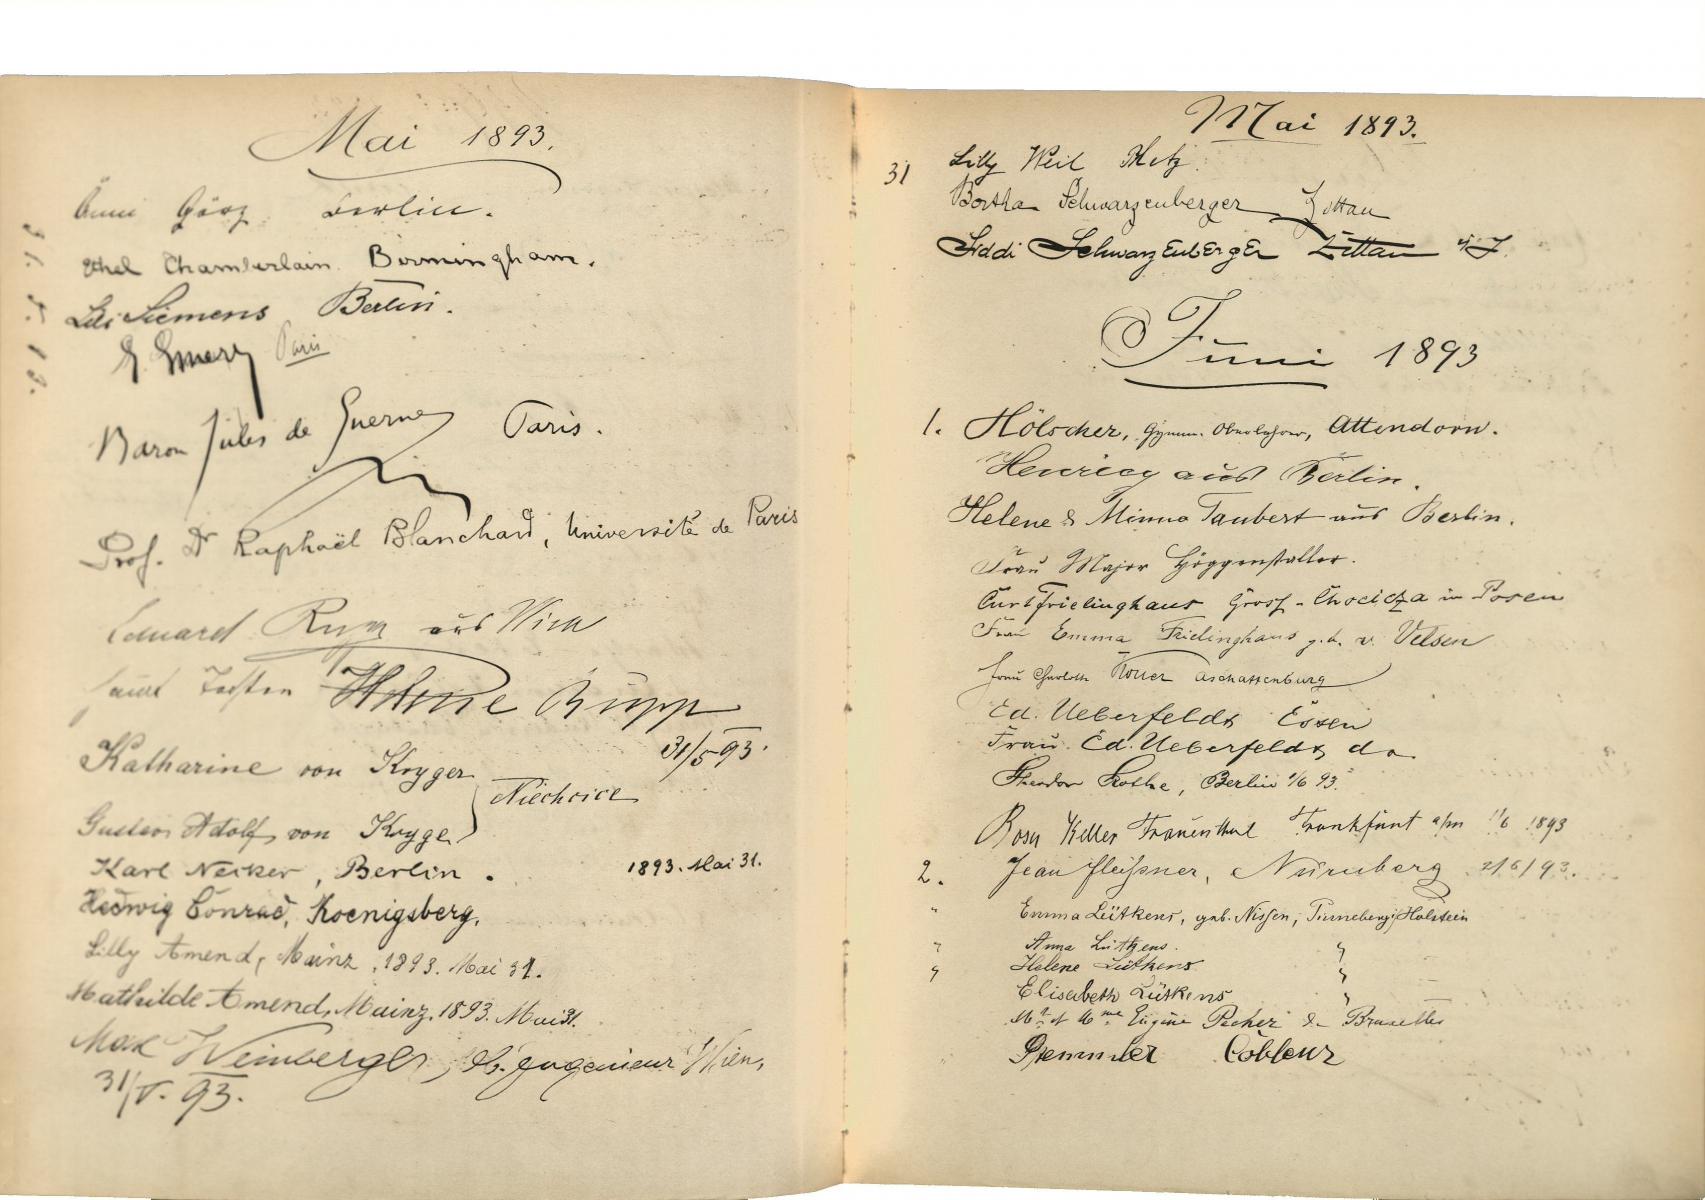 Mai 1893.
Änni Görz Berlin.
Ethel Chamberlain. Birmingham.
Lili Siemens Berlin.
Emery Paris
Baron Jules de Guerne Paris.
Prof. Dr Raphaël Blanchard, Université de Paris
Eduard aus Wien
Helene Rupp
31/5 93.
Katharine von Kryger
Gustav Adolf von Kryger
Karl Necker, Berlin. 1893. Mai 31.
Hedwig Conrad, Koenigsberg.
Lilly Amend, Mainz, 1893. Mai 31.
Mathilde Amend, Mainz, 1893. Mai 31.
Max Weinberger, Ingenieur Wien,
31/V. 93.
Mai 1893.
31 Lilly Weil Metz.
Bertha Schwarzenberger Zittau
Schwarzenberger Zittau
Juni 1893
1. Hölscher, Gymn. Oberlehrer, Attendorn.
aus Berlin.
Helene & Minna Taubert aus Berlin.
Frau Major Höggenstaller.
Curt Frielinghaus Gross-Chocicza in Posen
Frau Emma Frielinghaus geb. v. Velsen
Frau Aschaffenburg
Ed. Ueberfeldt Essen
Frau Ed. Ueberfeldt do
Theodor Rothe, Berlin 1/6 93.
Rosa Keller Frauenthal Frankfurt a/m 1/6 1893
2. Jean Fleißner, Nürnberg 2/6/93.
" Emma Lütkens, geb. Nissen, Holstein
" Anna Lütkens. "
" Helene Lütkens "
Elisabeth Lütkens "
Mr et Mme Eugène Pecher de Bruxelles
Coblenz